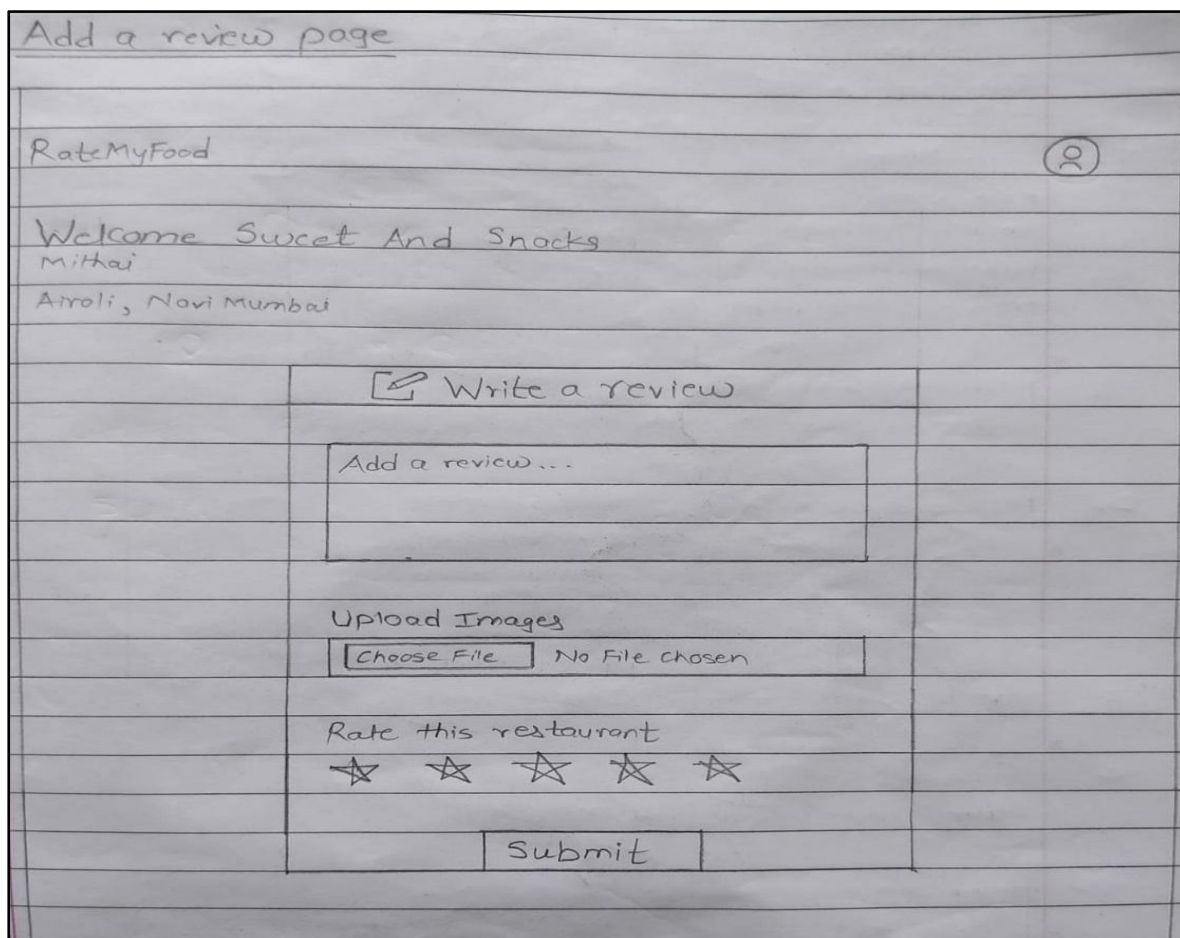 Add a review page
RateMyFood
Welcome Sweet And Snacks
Mithai
Airoli, Navi Mumbai
Write a review
Add a review...
Upload Images
Choose File No File chosen
Rate this restaurant
Submit